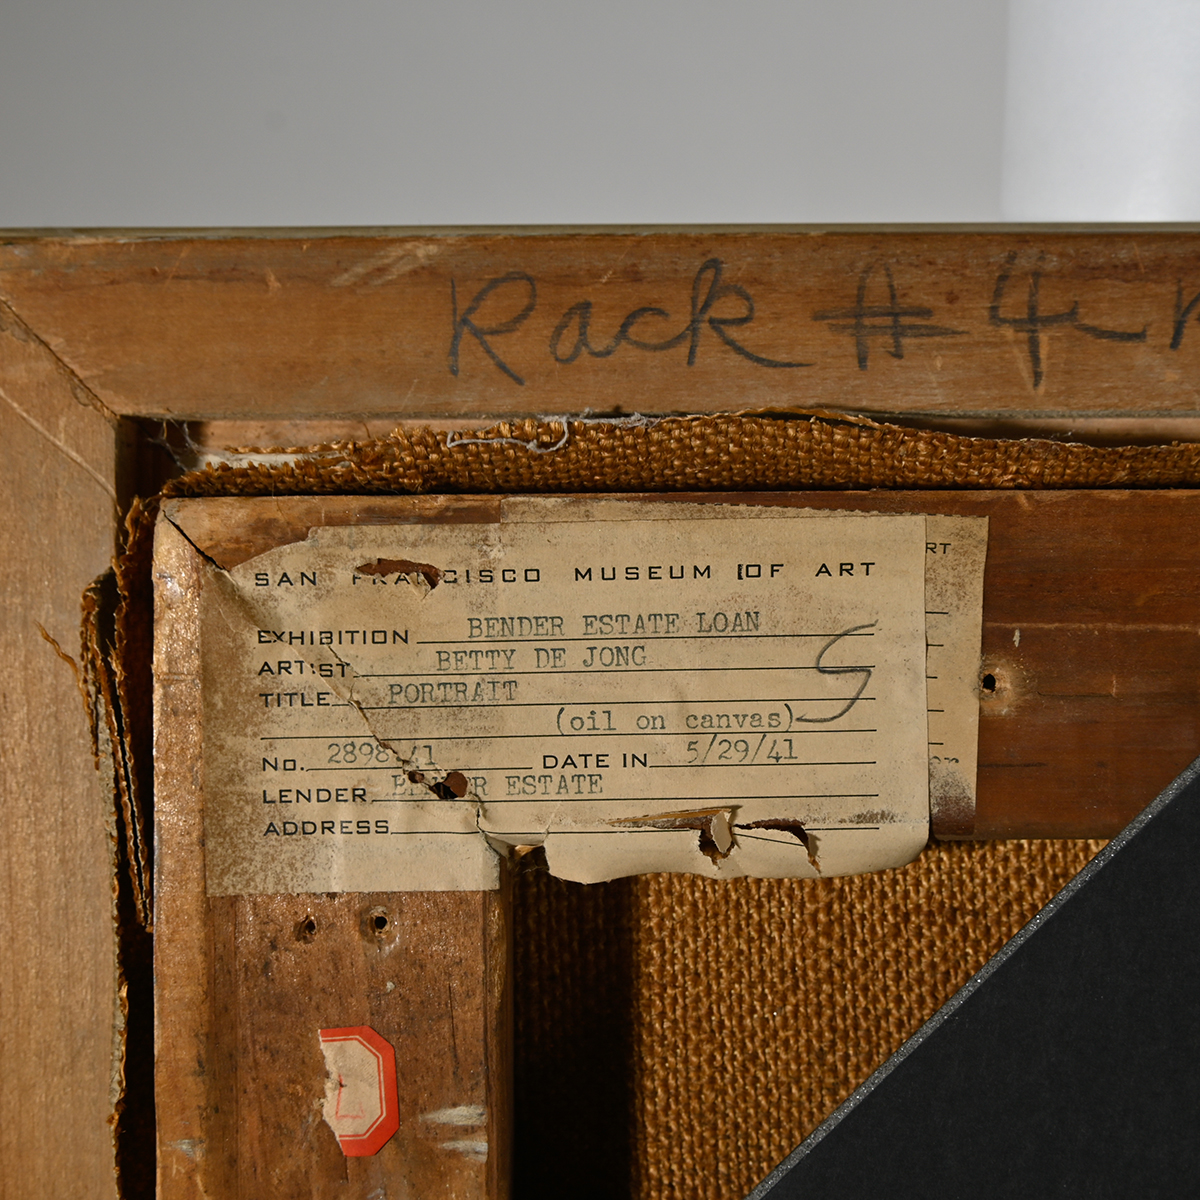 Rack # 4
SAN FRANCISCO MUSEUM OF ART
RT
EXHIBITION BENDER ESTATE LOAN
ARTIST BETTY DE JONG
TITLE PORTRAIT
(oil on canvas)
No. DATE IN 5/29/41
LENDER BENDER ESTATE
ADDRESS